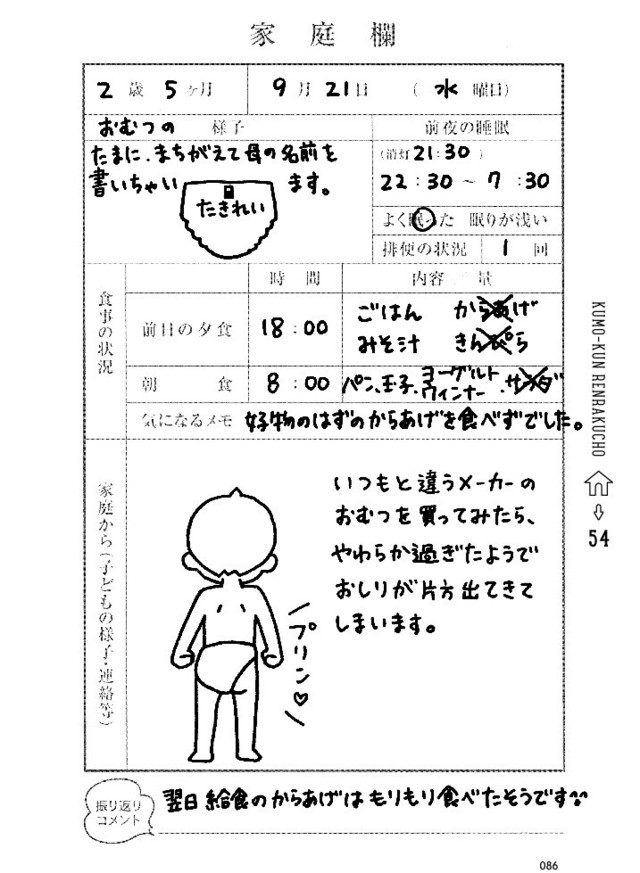 家庭欄
2歳5ヶ月 9月21日 (水曜日)
おむつの 様子
たまに、まちがえて母の名前を
書いちゃい ます。
たきれい
前夜の睡眠
(消灯21:30)
22:30~7:30
よく眠った 眠りが浅い
排便の状況 1回
食事の状況
時間 内容 量
前日の夕食 18:00 ごはん からあげ
みそ汁 きんぴら
朝食 8:00 パン、玉子、ヨーグルト
ウィンナー、サラダ
気になるメモ 好物のはずのからあげを食べずでした。
家庭から(子どもの様子・連絡等)
いつもと違うメーカーの
おむつを買ってみたら、
やわらか過ぎたようで
おしりが片方出てきて
しまいます。
プリン♡
振り返り
コメント
翌日給食のからあげはもりもり食べたそうです
KUMO-KUN RENRAKUCHO
54
086